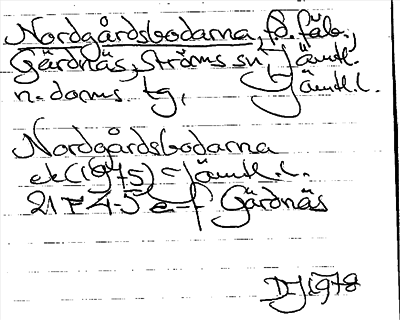 Nordgårdsbodarna, fd. fäb.,
Gärdnäs, Ströms sn, Jämtl.
n. doms. tg, Jämtl. l.
Nordgårdsbodarna
ek (1975) = Jämtl. l.
21 F 4-5 e-f Gärdnäs
DJ 1978